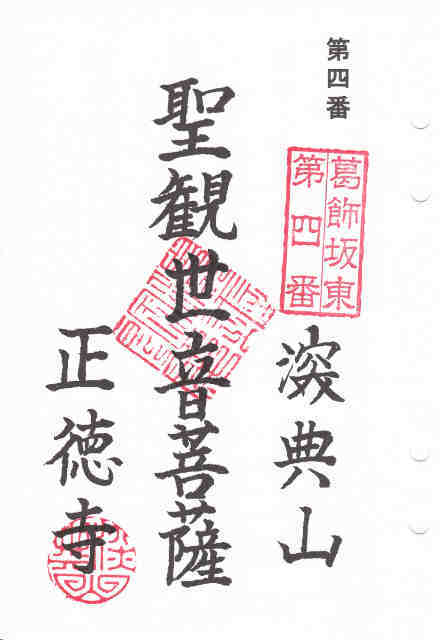 第四番
葛飾坂東
第四番
典山
聖観世音菩薩
正徳寺